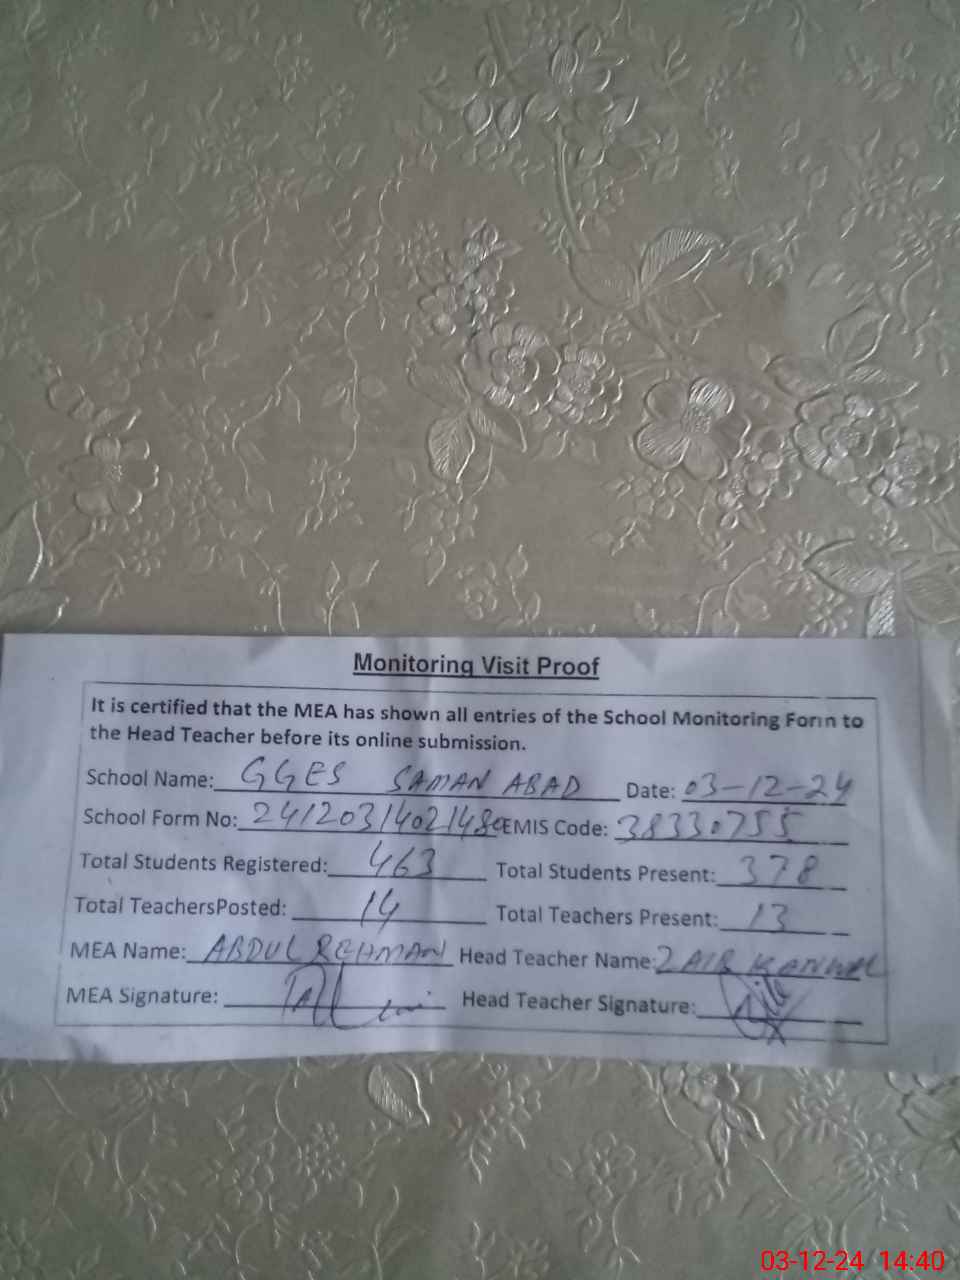 Monitoring Visit Proof
It is certified that the MEA has shown all entries of the School Monitoring Form to
the Head Teacher before its online submission.
School Name: GGES SAMAN ABAD Date: 03-12-24
School Form No: EMIS Code: 38330755
Total Students Registered: 463 Total Students Present: 378
Total TeachersPosted: 14 Total Teachers Present: 13
MEA Name: ABDUL REHMAN Head Teacher Name:
MEA Signature: Head Teacher Signature:
03-12-24 14:40